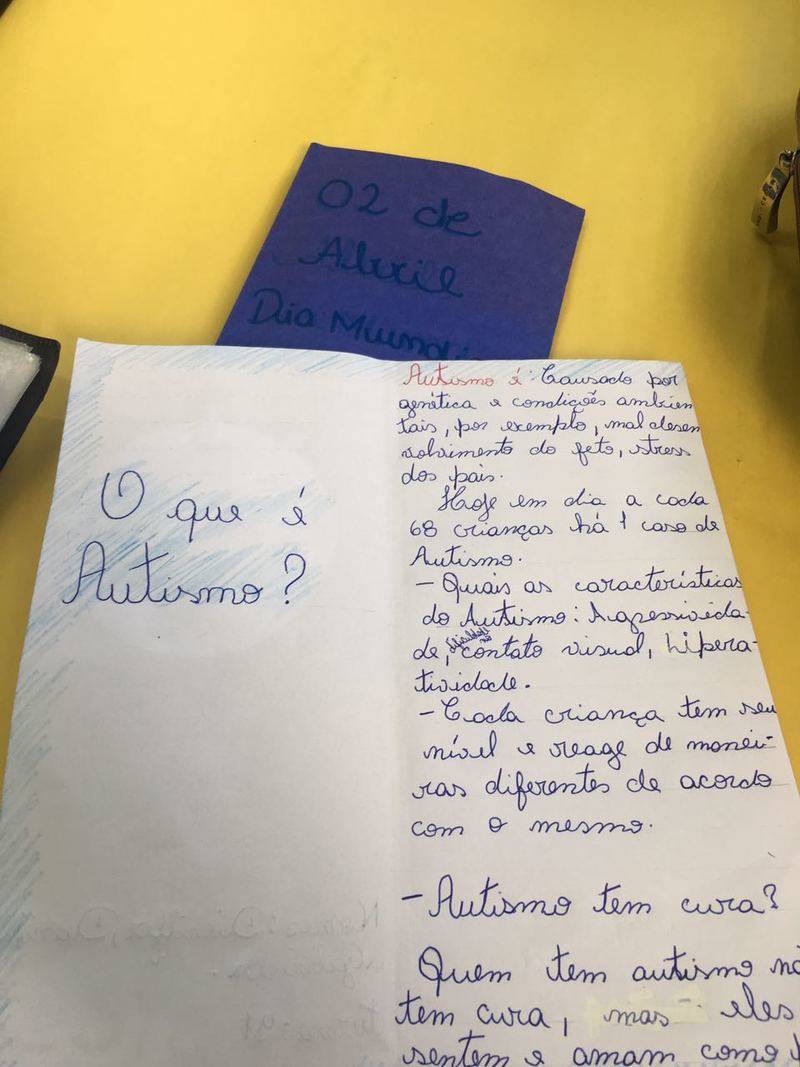 02 de
Abril
Dia Mundi
O que é
Autismo?
Autismo é: Causado por
genética e condições ambien
tais, por exemplo, mal desen
volvimento do feto, stress
dos pais.
Hoje em dia a cada
68 crianças há 1 caso de
Autismo.
- Quais as características
do Autismo: Agressivida-
de, contato visual, hipera-
tividade.
- Cada criança tem seu
nível e reage de manei-
ras diferentes de acordo
com o mesmo.
- Autismo tem cura?
Quem tem autismo nã
tem cura, mas eles
sentem e amam como